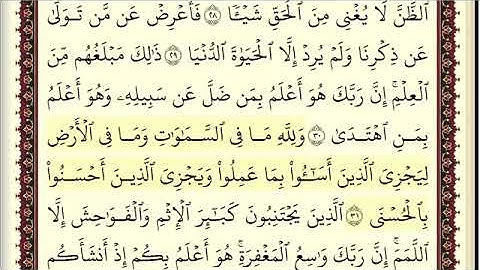 ٱلظَّنَّ لَا يُغْنِى مِنَ ٱلْحَقِّ شَيْـًٔا ﴿٢٨﴾ فَأَعْرِضْ عَن مَّن تَوَلَّىٰ
عَن ذِكْرِنَا وَلَمْ يُرِدْ إِلَّا ٱلْحَيَوٰةَ ٱلدُّنْيَا ﴿٢٩﴾ ذَٰلِكَ مَبْلَغُهُم مِّنَ
ٱلْعِلْمِ ۚ إِنَّ رَبَّكَ هُوَ أَعْلَمُ بِمَن ضَلَّ عَن سَبِيلِهِۦ وَهُوَ أَعْلَمُ
بِمَنِ ٱهْتَدَىٰ ﴿٣٠﴾ وَلِلَّهِ مَا فِى ٱلسَّمَٰوَٰتِ وَمَا فِى ٱلْأَرْضِ
لِيَجْزِىَ ٱلَّذِينَ أَسَٰٓـُٔوا۟ بِمَا عَمِلُوا۟ وَيَجْزِىَ ٱلَّذِينَ أَحْسَنُوا۟
بِٱلْحُسْنَى ﴿٣١﴾ ٱلَّذِينَ يَجْتَنِبُونَ كَبَٰٓئِرَ ٱلْإِثْمِ وَٱلْفَوَٰحِشَ إِلَّا
ٱللَّمَمَ ۚ إِنَّ رَبَّكَ وَٰسِعُ ٱلْمَغْفِرَةِ ۚ هُوَ أَعْلَمُ بِكُمْ إِذْ أَنشَأَكُم